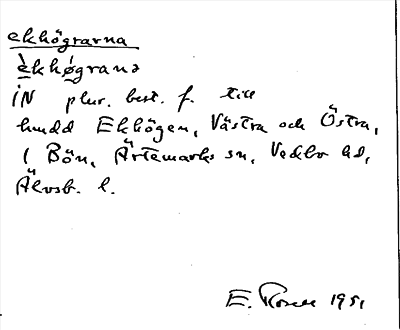 ekhögrarna
èkhø̀grana
iN plur. best. f. till
hmdd Ekhögen, Västra och Östra,
i Bön, Ärtemarks sn, Vedbo hd,
Älvsb. l.
E. 1951